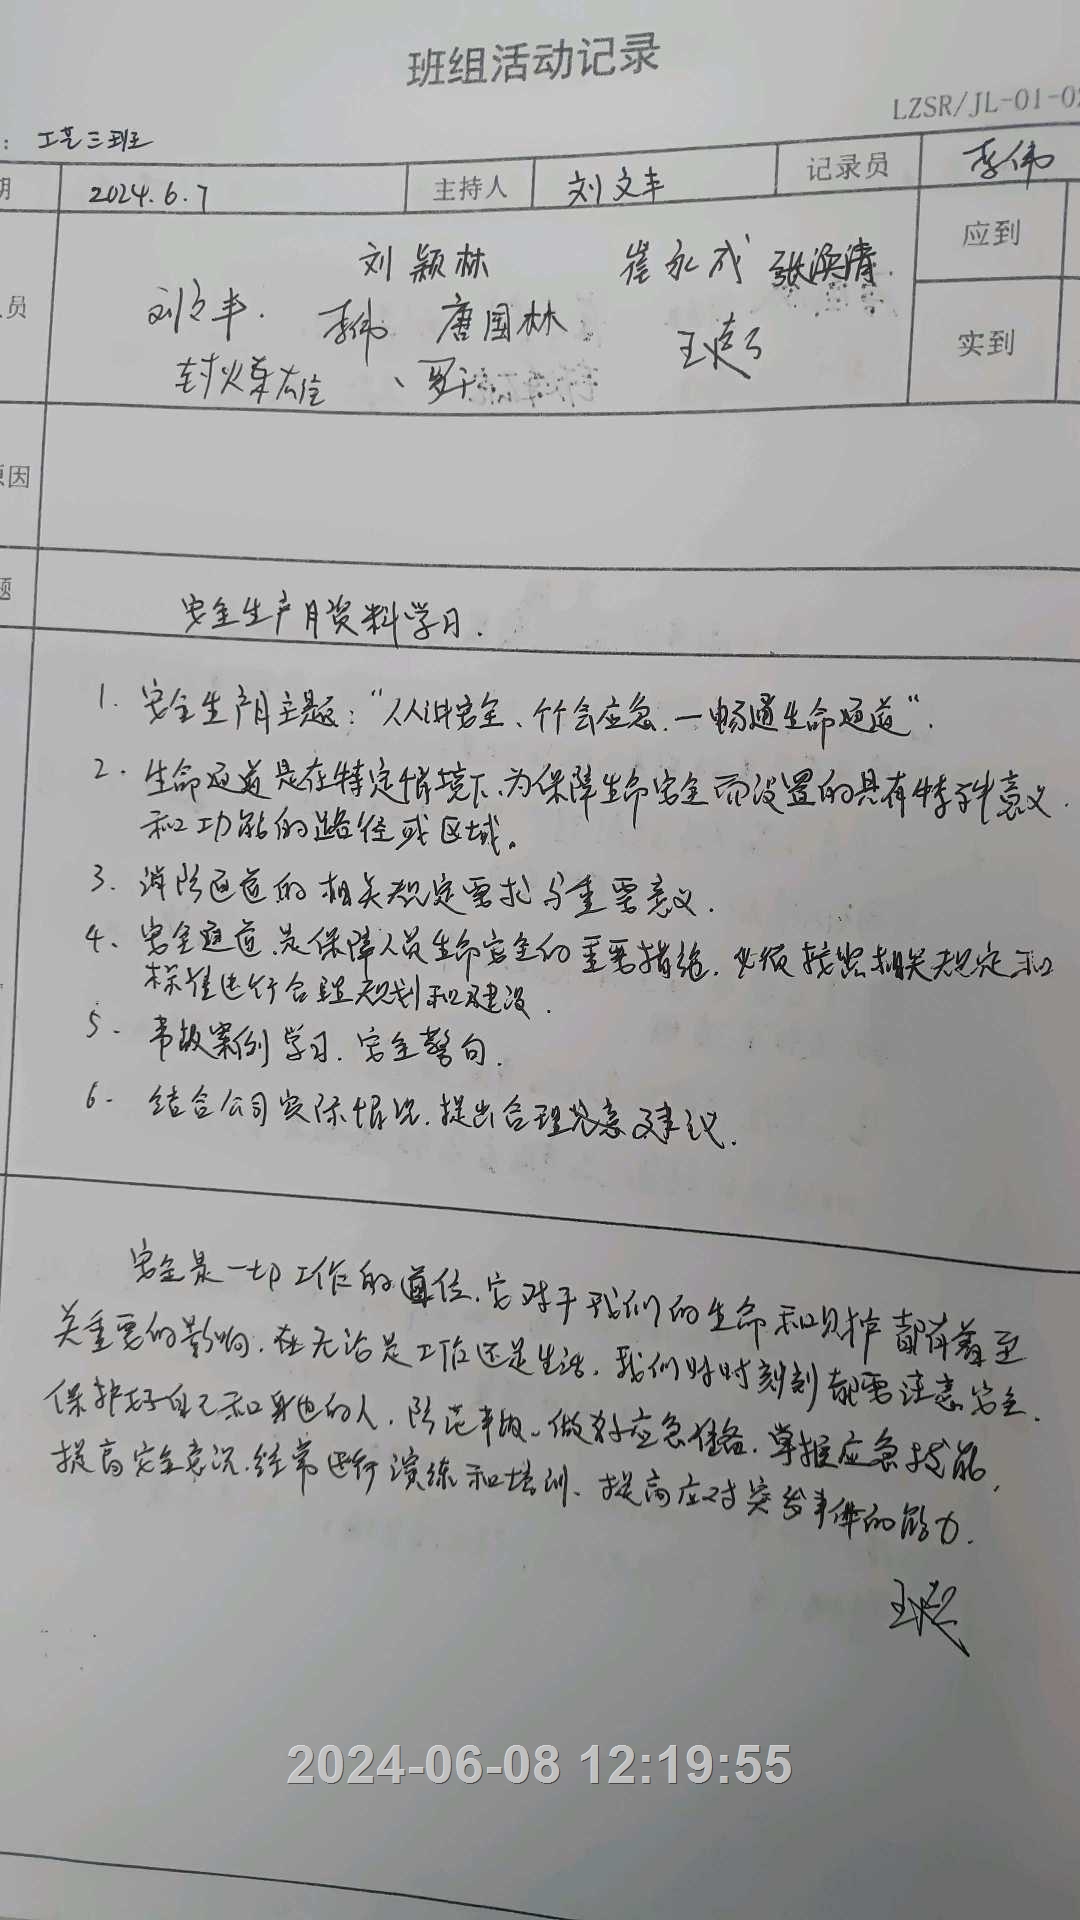 班组活动记录
LZSR/JL-01-02
： 工艺三班
期 2024.6.7 主持人 刘文丰 记录员 李伟
刘颖林 崔永成 张滨清 应到
员 刘文丰. 李伟 唐国林 王
实到
封火 雄 、罗
原因
题 安全生产月资料学习.
1. 安全生产月主题：“人人讲安全、个个会应急.一畅通生命通道”.
2. 生命通道是在特定情境下、为保障生命安全而设置的具有特殊意义.
和功能的路径或区域。
3. 消防通道的相关规定要求与重要意义.
4、安全通道.是保障人员生命安全的重要措施.必须按照相关规定和
标准进行合理规划和建设.
5. 事故案例学习.安全警句.
6. 结合公司实际情况.提出合理化意建议.
安全是一切工作的首位.它对于我们的生命和财产都有着至
关重要的影响.在无论是工作还是生活.我们时时刻刻都要注意安全.
保护好自己和身边的人.防范事故.做好应急准备.掌握应急技能,
提高安全意识.经常进行演练和培训、提高应对突发事件的能力.
王
2024-06-08 12:19:55